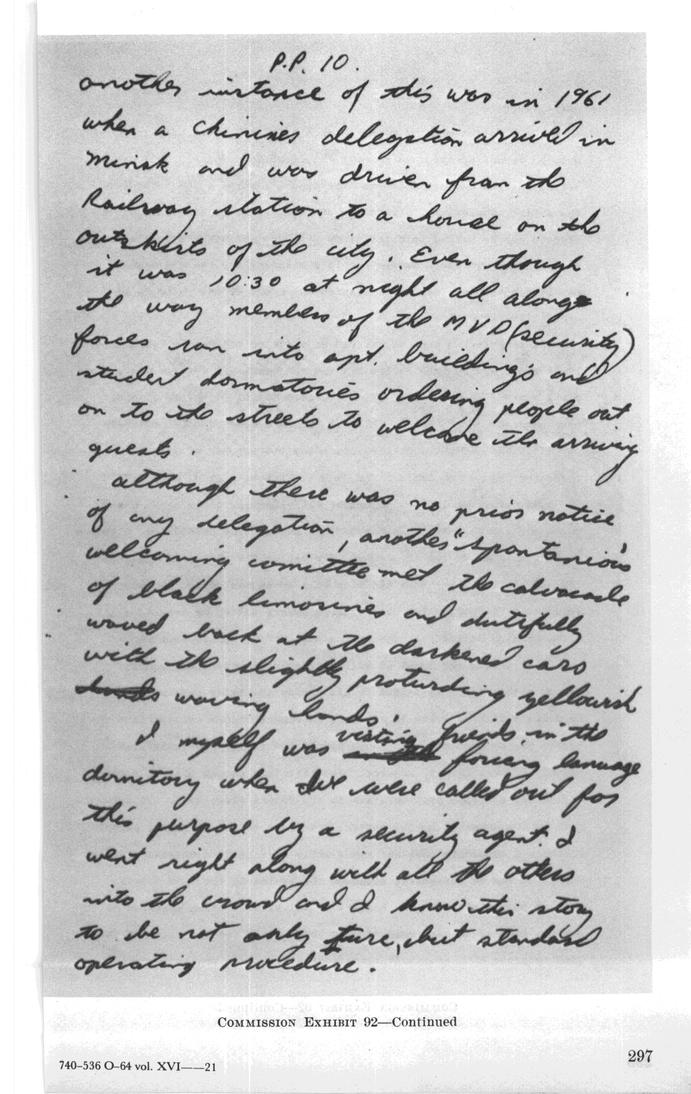 P.P. 10.
another instance of this was in 1961
when a chinines delegation arrived in
Minsk and was driven from the
Railway station to a house on the
outskirts of the city. Even though
it was 10:30 at night all along
the way members of the MVD (security)
forces ran into apt. buildings and
student dormatories ordering people out
on to the streets to welcome the arriving
guests.
although there was no prior notice
of any delegation, another "spontanious
welcoming comittee met the calvacade
of black limosines and dutifully
waved back at the darkened cars
with the slightly proturding yellowish
waving hands.
I myself was visting friends in the
foring lanuage
dormitory when we were called out for
this purpose by a security agent. I
went right along with all the others
into the crowd and I know this story
to be not only ture, but standard
operating procedure.
COMMISSION EXHIBIT 92—Continued
297
740-536 O-64 vol. XVI——21